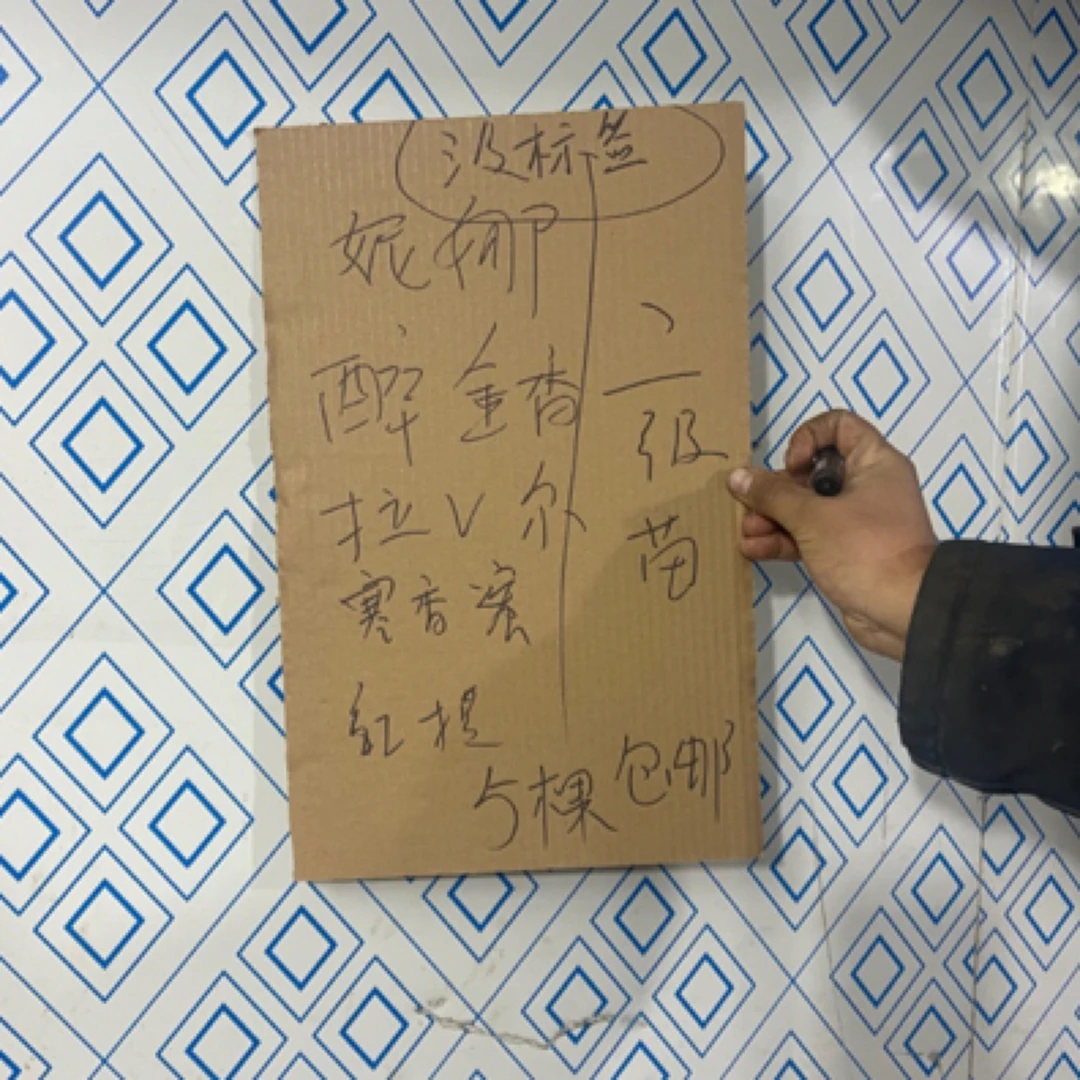 没标签
妮娜
醉金香
拉V尔
寒香蜜
红提
二级苗
5棵包邮